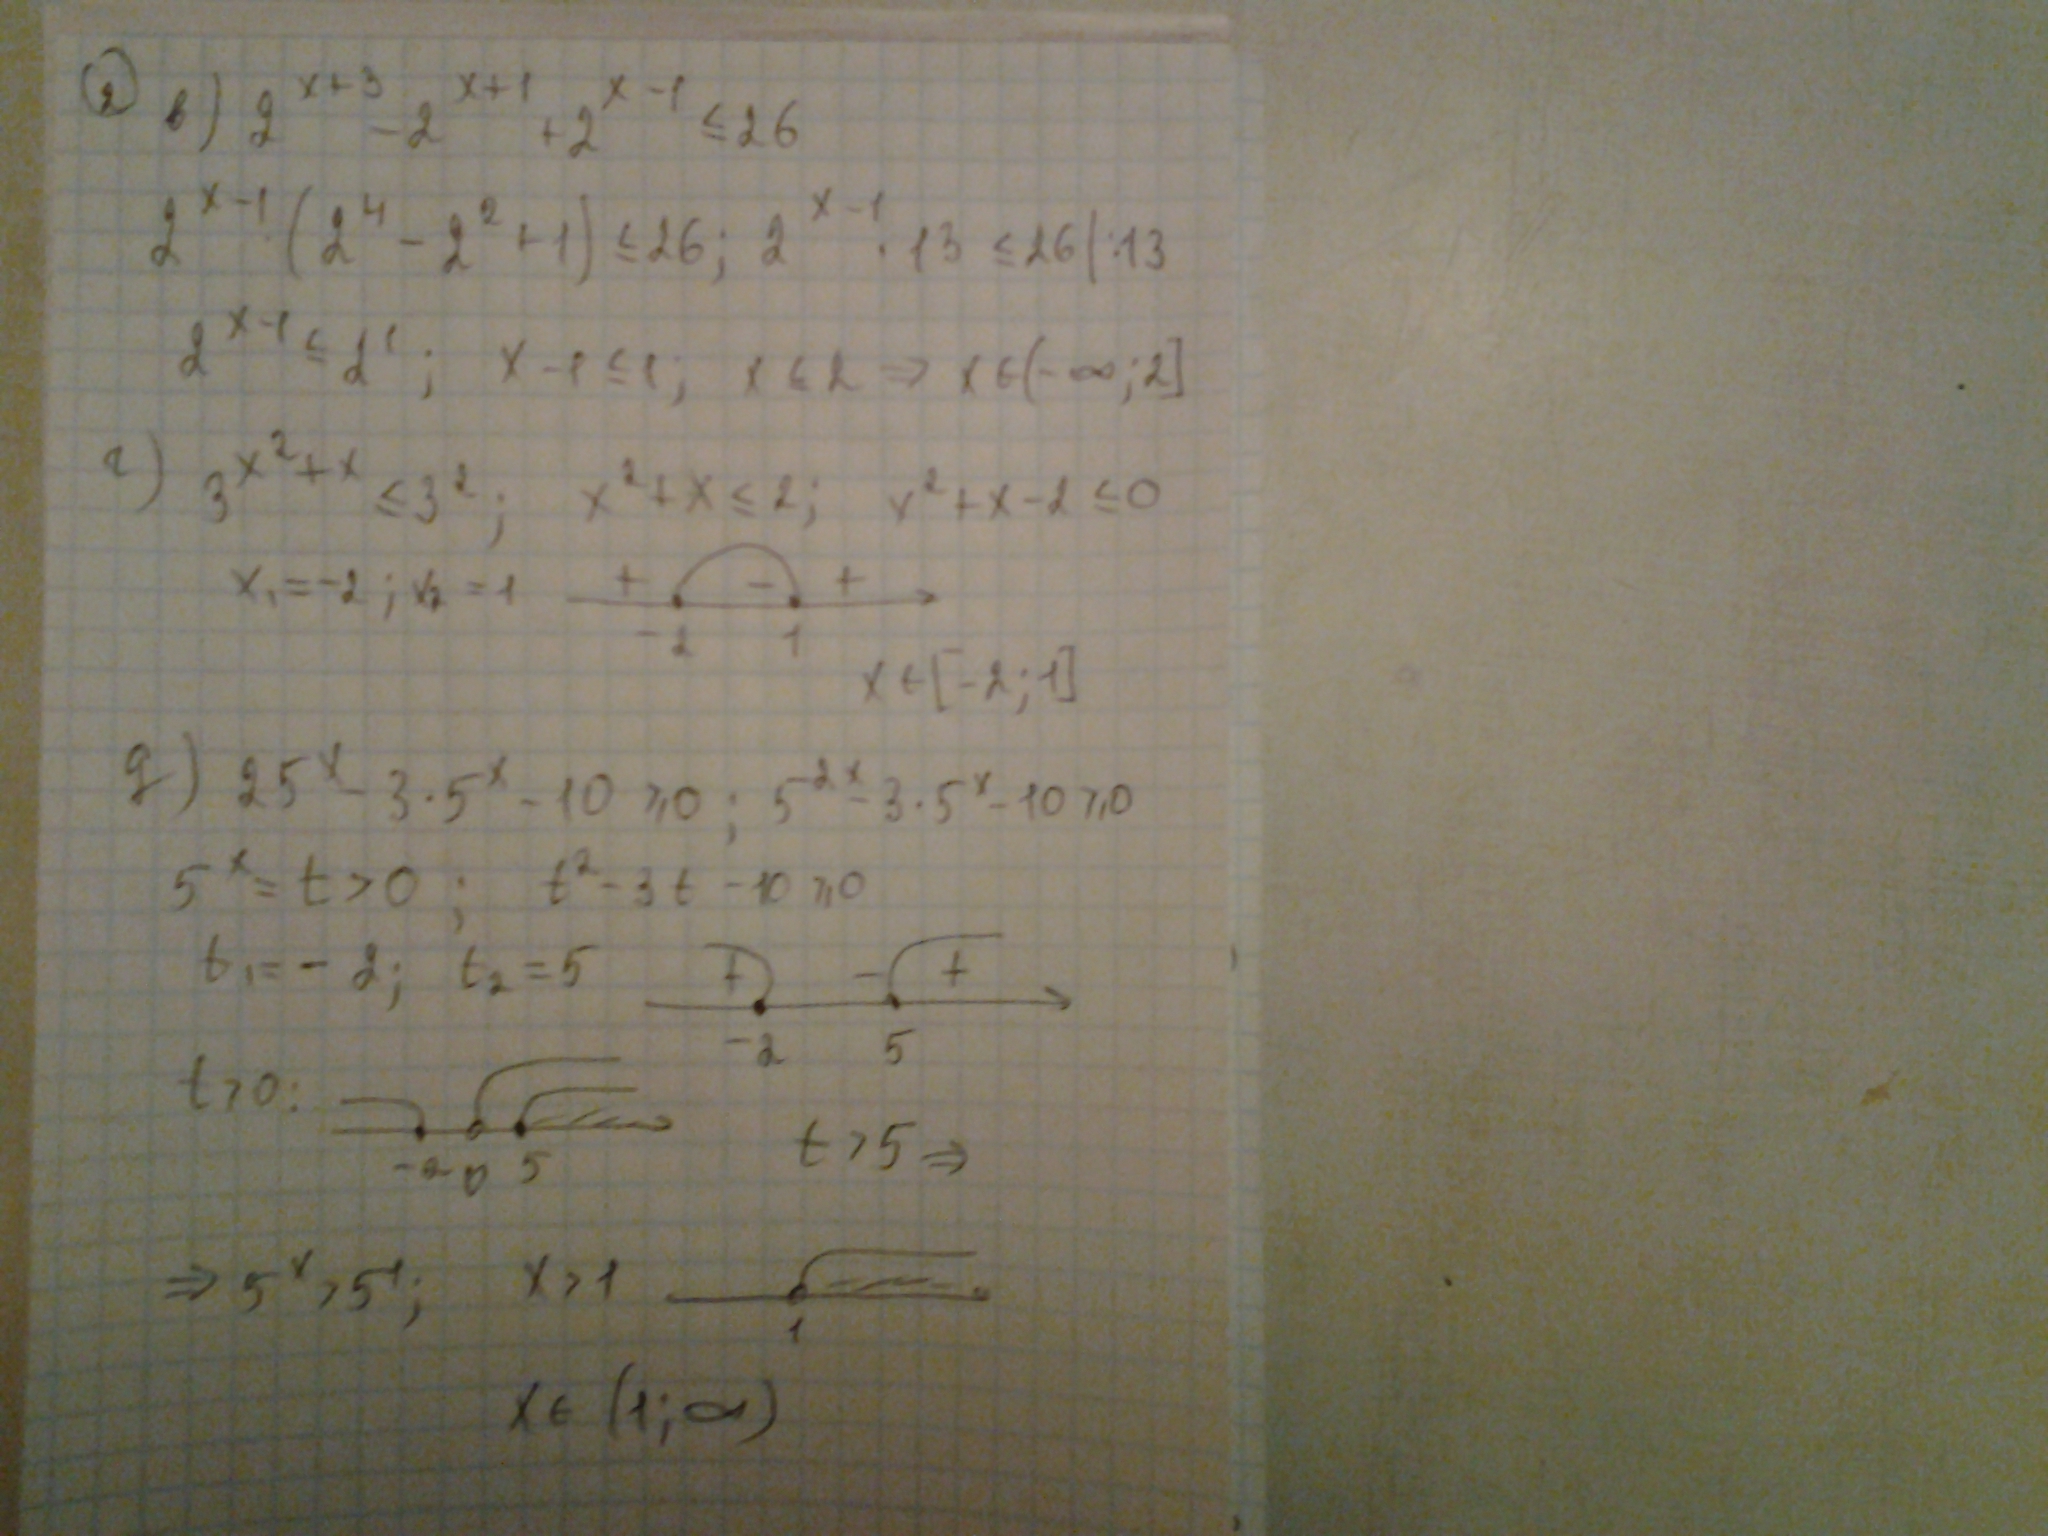 ② в) 2^(x+3) - 2^(x+1) + 2^(x-1) ≤ 26
2^(x-1) · (2^4 - 2^2 + 1) ≤ 26; 2^(x-1) · 13 ≤ 26 | :13
2^(x-1) ≤ 2^1; x - 1 ≤ 1; x ≤ 2 ⇒ x ∈ (-∞; 2]
г) 3^(x^2+x) ≤ 3^2; x^2 + x ≤ 2; x^2 + x - 2 ≤ 0
x₁ = -2; x₂ = 1 + - +
-2 1
x ∈ [-2; 1]
д) 25^x - 3·5^x - 10 ⩾ 0; 5^(2x) - 3·5^x - 10 ⩾ 0
5^x = t > 0; t^2 - 3t - 10 ⩾ 0
t₁ = -2; t₂ = 5 + - +
-2 5
t > 0:
-2 0 5 t > 5 ⇒
⇒ 5^x > 5^1; x > 1
1
x ∈ (1; ∞)